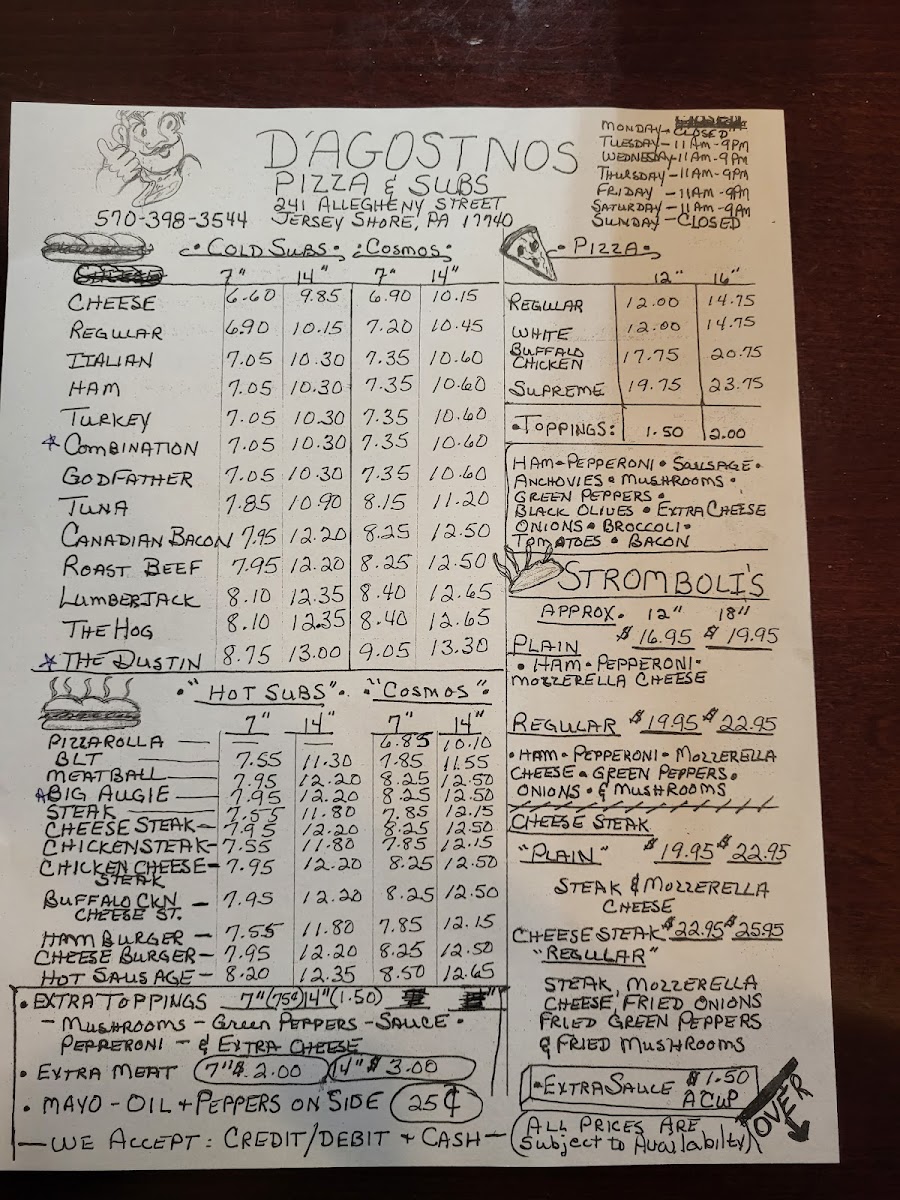 D'AGOSTNOS
PIZZA & SUBS
241 ALLEGHENY STREET
JERSEY SHORE, PA 17740
570-398-3544
MONDAY - CLOSED
TUESDAY - 11AM-9PM
WEDNESDAY - 11AM-9PM
THURSDAY - 11AM-9PM
FRIDAY - 11AM-9PM
SATURDAY - 11AM-9PM
SUNDAY - CLOSED
• COLD SUBS • • COSMOS •
7" 14" 7" 14"
CHEESE 6.60 9.85 6.90 10.15
REGULAR 6.90 10.15 7.20 10.45
ITALIAN 7.05 10.30 7.35 10.60
HAM 7.05 10.30 7.35 10.60
TURKEY 7.05 10.30 7.35 10.60
☆ COMBINATION 7.05 10.30 7.35 10.60
GODFATHER 7.05 10.30 7.35 10.60
TUNA 7.85 10.90 8.15 11.20
CANADIAN BACON 7.95 12.20 8.25 12.50
ROAST BEEF 7.95 12.20 8.25 12.50
LUMBERJACK 8.10 12.35 8.40 12.65
THE HOG 8.10 12.35 8.40 12.65
☆ THE DUSTIN 8.75 13.00 9.05 13.30
• "HOT SUBS" • • "COSMOS" •
7" 14" 7" 14"
PIZZAROLLA — — — 6.85 10.10
BLT — 7.55 11.30 7.85 11.55
MEATBALL — 7.95 12.20 8.25 12.50
☆ BIG AUGIE — 7.95 12.20 8.25 12.50
STEAK — 7.55 11.80 7.85 12.15
CHEESE STEAK — 7.95 12.20 8.25 12.50
CHICKENSTEAK — 7.55 11.80 7.85 12.15
CHICKEN CHEESE — 7.95 12.20 8.25 12.50
STEAK
BUFFALO CKN — 7.95 12.20 8.25 12.50
CHEESE ST.
HAMBURGER — 7.55 11.80 7.85 12.15
CHEESE BURGER — 7.95 12.20 8.25 12.50
HOT SAUSAGE — 8.20 12.35 8.50 12.65
• EXTRA TOPPINGS 7" (75¢) 14" (1.50)
— MUSHROOMS — GREEN PEPPERS — SAUCE •
PEPPERONI — & EXTRA CHEESE
• EXTRA MEAT 7" $ 2.00 14" $ 3.00
• MAYO - OIL + PEPPERS ON SIDE 25¢
— WE ACCEPT: CREDIT/DEBIT + CASH —
• PIZZA •
12" 16"
REGULAR 12.00 14.75
WHITE 12.00 14.75
BUFFALO
CHICKEN 17.75 20.75
SUPREME 19.75 23.75
• TOPPINGS: 1.50 2.00
HAM • PEPPERONI • SAUSAGE •
ANCHOVIES • MUSHROOMS •
GREEN PEPPERS •
BLACK OLIVES • EXTRA CHEESE
ONIONS • BROCCOLI •
TOMATOES • BACON
STROMBOLI'S
APPROX. 12" 18"
PLAIN $16.95 $19.95
• HAM • PEPPERONI •
MOZZERELLA CHEESE
REGULAR $19.95 $22.95
• HAM • PEPPERONI • MOZZERELLA
CHEESE • GREEN PEPPERS •
ONIONS • & MUSHROOMS
CHEESE STEAK
"PLAIN" $19.95 $22.95
STEAK & MOZZERELLA
CHEESE
CHEESE STEAK $22.95 $25.95
"REGULAR"
STEAK, MOZZERELLA
CHEESE, FRIED ONIONS
FRIED GREEN PEPPERS
& FRIED MUSHROOMS
• EXTRA SAUCE $1.50
A CUP
(ALL PRICES ARE
Subject to Availabilty)
OVER